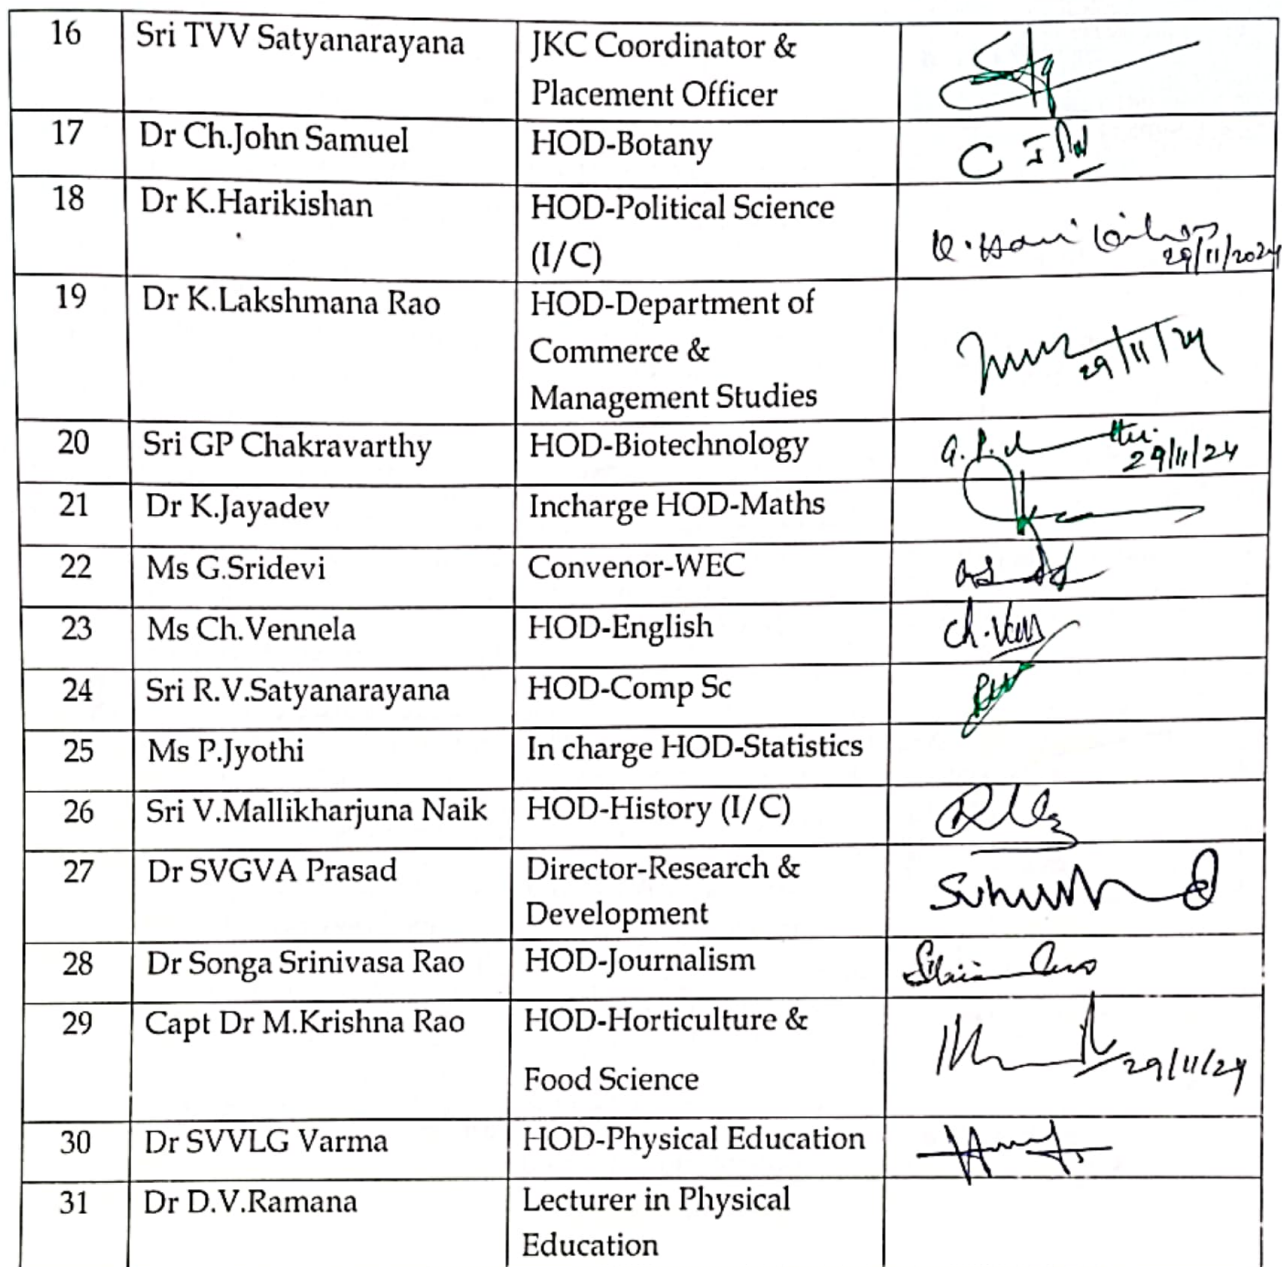 16 Sri TVV Satyanarayana JKC Coordinator &
Placement Officer
17 Dr Ch.John Samuel HOD-Botany
18 Dr K.Harikishan HOD-Political Science
(I/C)
29/11/2024
19 Dr K.Lakshmana Rao HOD-Department of
Commerce &
29/11/24
Management Studies
20 Sri GP Chakravarthy HOD-Biotechnology
29/11/24
21 Dr K.Jayadev Incharge HOD-Maths
22 Ms G.Sridevi Convenor-WEC
23 Ms Ch.Vennela HOD-English
24 Sri R.V.Satyanarayana HOD-Comp Sc
25 Ms P.Jyothi In charge HOD-Statistics
26 Sri V.Mallikharjuna Naik HOD-History (I/C)
27 Dr SVGVA Prasad Director-Research &
Development
28 Dr Songa Srinivasa Rao HOD-Journalism
29 Capt Dr M.Krishna Rao HOD-Horticulture &
Food Science 29/11/24
30 Dr SVVLG Varma HOD-Physical Education
31 Dr D.V.Ramana Lecturer in Physical
Education